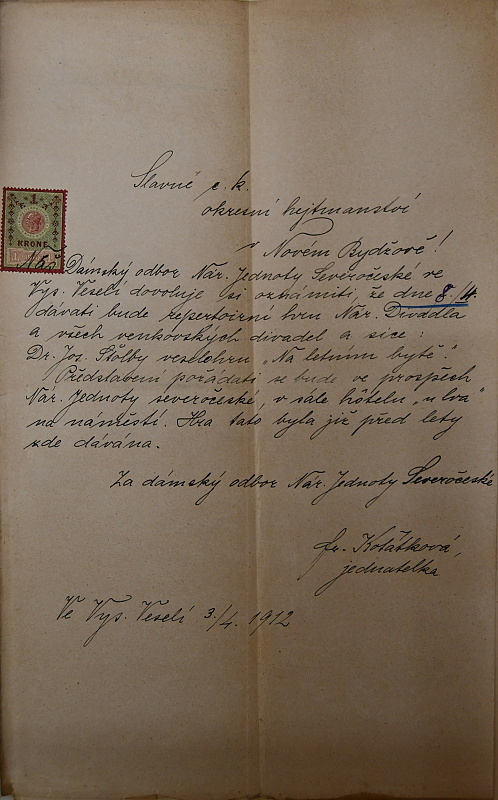 Slavné c. k.
okresní hejtmanství
v Novém Bydžově!
1
KRONE
Náš Dámský odbor Nár. Jednoty Severočeské ve
Vys. Veselí dovoluje si oznámiti, že dne 8./4.
dávati bude repertoirní hru Nár. Divadla
a všech venkovských divadel a sice:
Dr. Jos. Štolby veselohru „Na letním bytě."
Představení pořádati se bude ve prospěch
Nár. Jednoty severočeské, v sále hôtelu „u lva"
na náměstí. Hra tato byla již před lety
zde dávána.
Za dámský odbor Nár. Jednoty Severočeské
fr. Košátková,
jednatelka
Ve Vys. Veselí 3./4. 1912